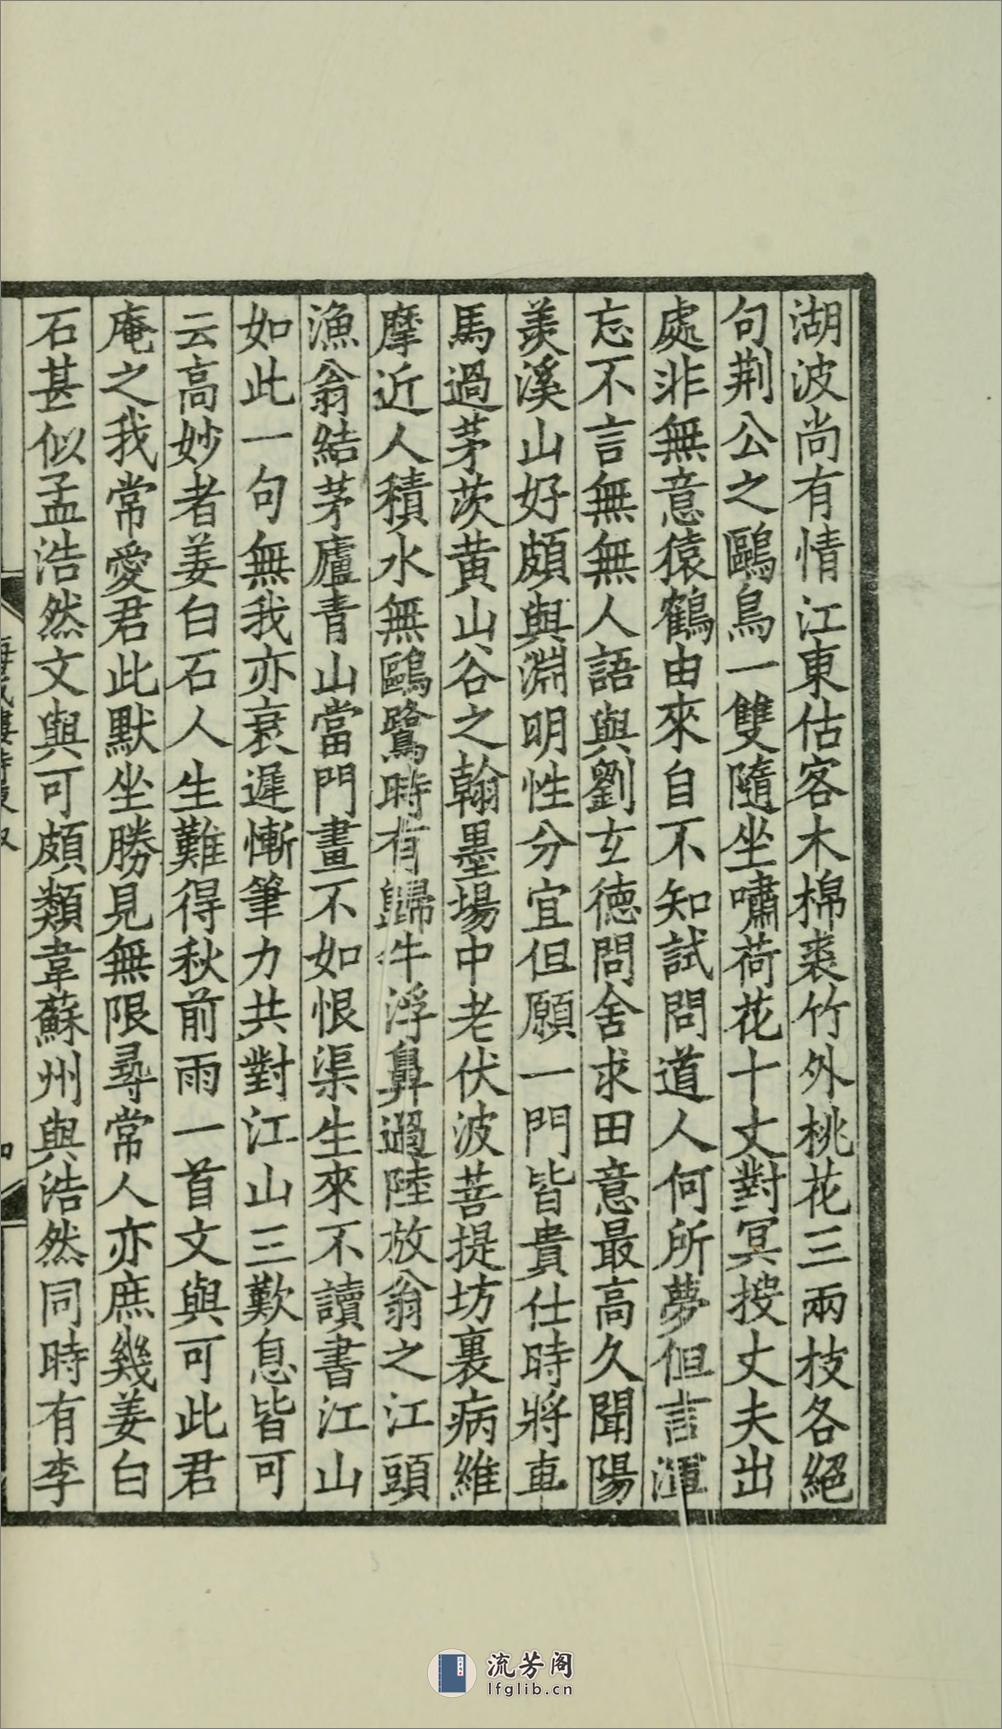 湖波尚有情江東估客木棉裘竹外桃花三兩枝各絕
句荆公之鷗鳥一雙隨坐嘯荷花十丈對冥搜丈夫出
處非無意猿鶴由來自不知試問道人何所夢但言渾
忘不言無無人語與劉玄德問舍求田意最高久聞陽
羨溪山好頗與淵明性分宜但願一門皆貴仕時將車
馬過茅茨黄山谷之翰墨場中老伏波菩提坊裏病維
摩近人積水無鷗鷺時有歸牛浮鼻過陸放翁之江頭
漁翁結茅廬青山當門畫不如恨渠生來不讀書江山
如此一句無我亦衰遲慚筆力共對江山三歎息皆可
云高妙者姜白石人生難得秋前雨一首文與可此君
庵之我常愛君此默坐勝見無限尋常人亦庶幾姜白
石甚似孟浩然文與可頗類韋蘇州與浩然同時有李
流芳阁
lfglib.cn